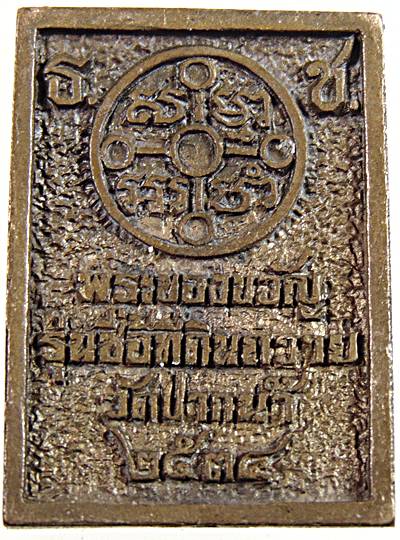 ธ. ช.
พระของขวัญ
รุ่นซื้อที่ดินถวาย
วัดปากน้ำ
๒๕๓๔